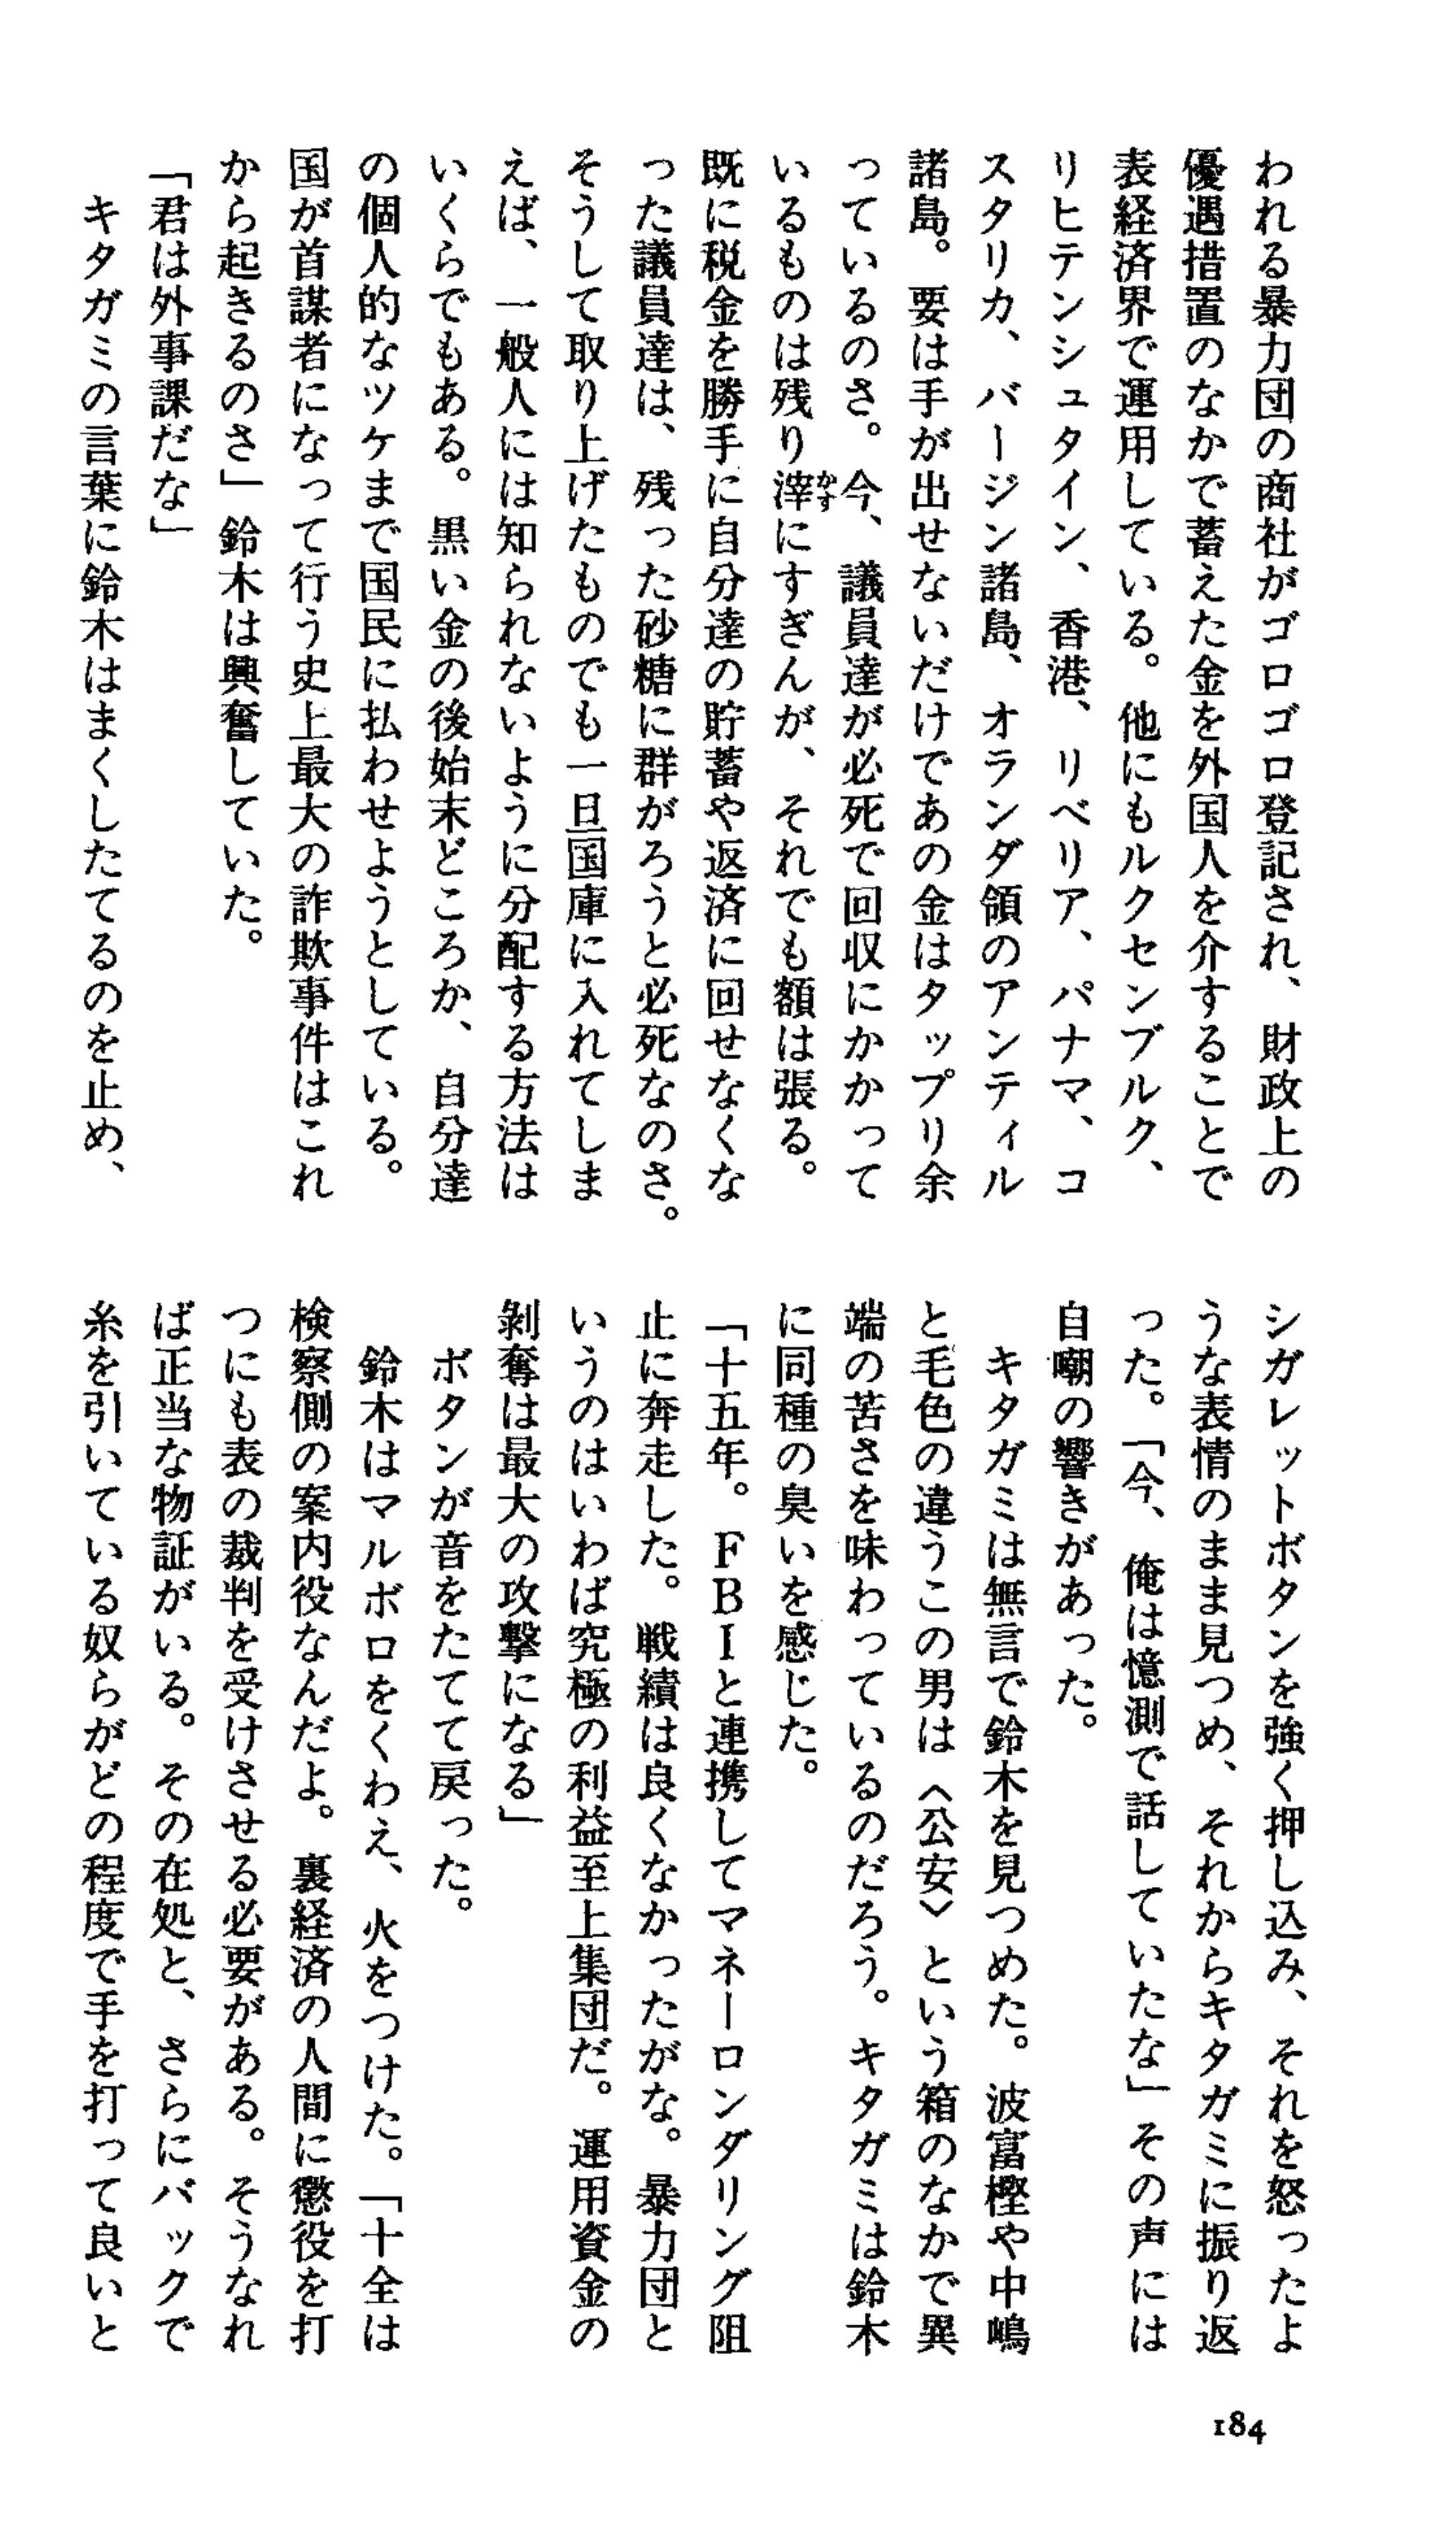 われる暴力団の商社がゴロゴロ登記され、財政上の
優遇措置のなかで蓄えた金を外国人を介することで
表経済界で運用している。他にもルクセンブルク、
リヒテンシュタイン、香港、リベリア、パナマ、コ
スタリカ、バージン諸島、オランダ領のアンティル
諸島。要は手が出せないだけであの金はタップリ余
っているのさ。今、議員達が必死で回収にかかって
いるものは残り滓にすぎんが、それでも額は張る。
既に税金を勝手に自分達の貯蓄や返済に回せなくな
った議員達は、残った砂糖に群がろうと必死なのさ。
そうして取り上げたものでも一旦国庫に入れてしま
えば、一般人には知られないように分配する方法は
いくらでもある。黒い金の後始末どころか、自分達
の個人的なツケまで国民に払わせようとしている。
国が首謀者になって行う史上最大の詐欺事件はこれ
から起きるのさ」鈴木は興奮していた。
「君は外事課だな」
キタガミの言葉に鈴木はまくしたてるのを止め、
シガレットボタンを強く押し込み、それを怒ったよ
うな表情のまま見つめ、それからキタガミに振り返
った。「今、俺は憶測で話していたな」その声には
自嘲の響きがあった。
キタガミは無言で鈴木を見つめた。波富樫や中嶋
と毛色の違うこの男は〈公安〉という箱のなかで異
端の苦さを味わっているのだろう。キタガミは鈴木
に同種の臭いを感じた。
「十五年。FBIと連携してマネーロンダリング阻
止に奔走した。戦績は良くなかったがな。暴力団と
いうのはいわば究極の利益至上集団だ。運用資金の
剝奪は最大の攻撃になる」
ボタンが音をたてて戻った。
鈴木はマルボロをくわえ、火をつけた。「十全は
検察側の案内役なんだよ。裏経済の人間に懲役を打
つにも表の裁判を受けさせる必要がある。そうなれ
ば正当な物証がいる。その在処と、さらにバックで
糸を引いている奴らがどの程度で手を打って良いと
184